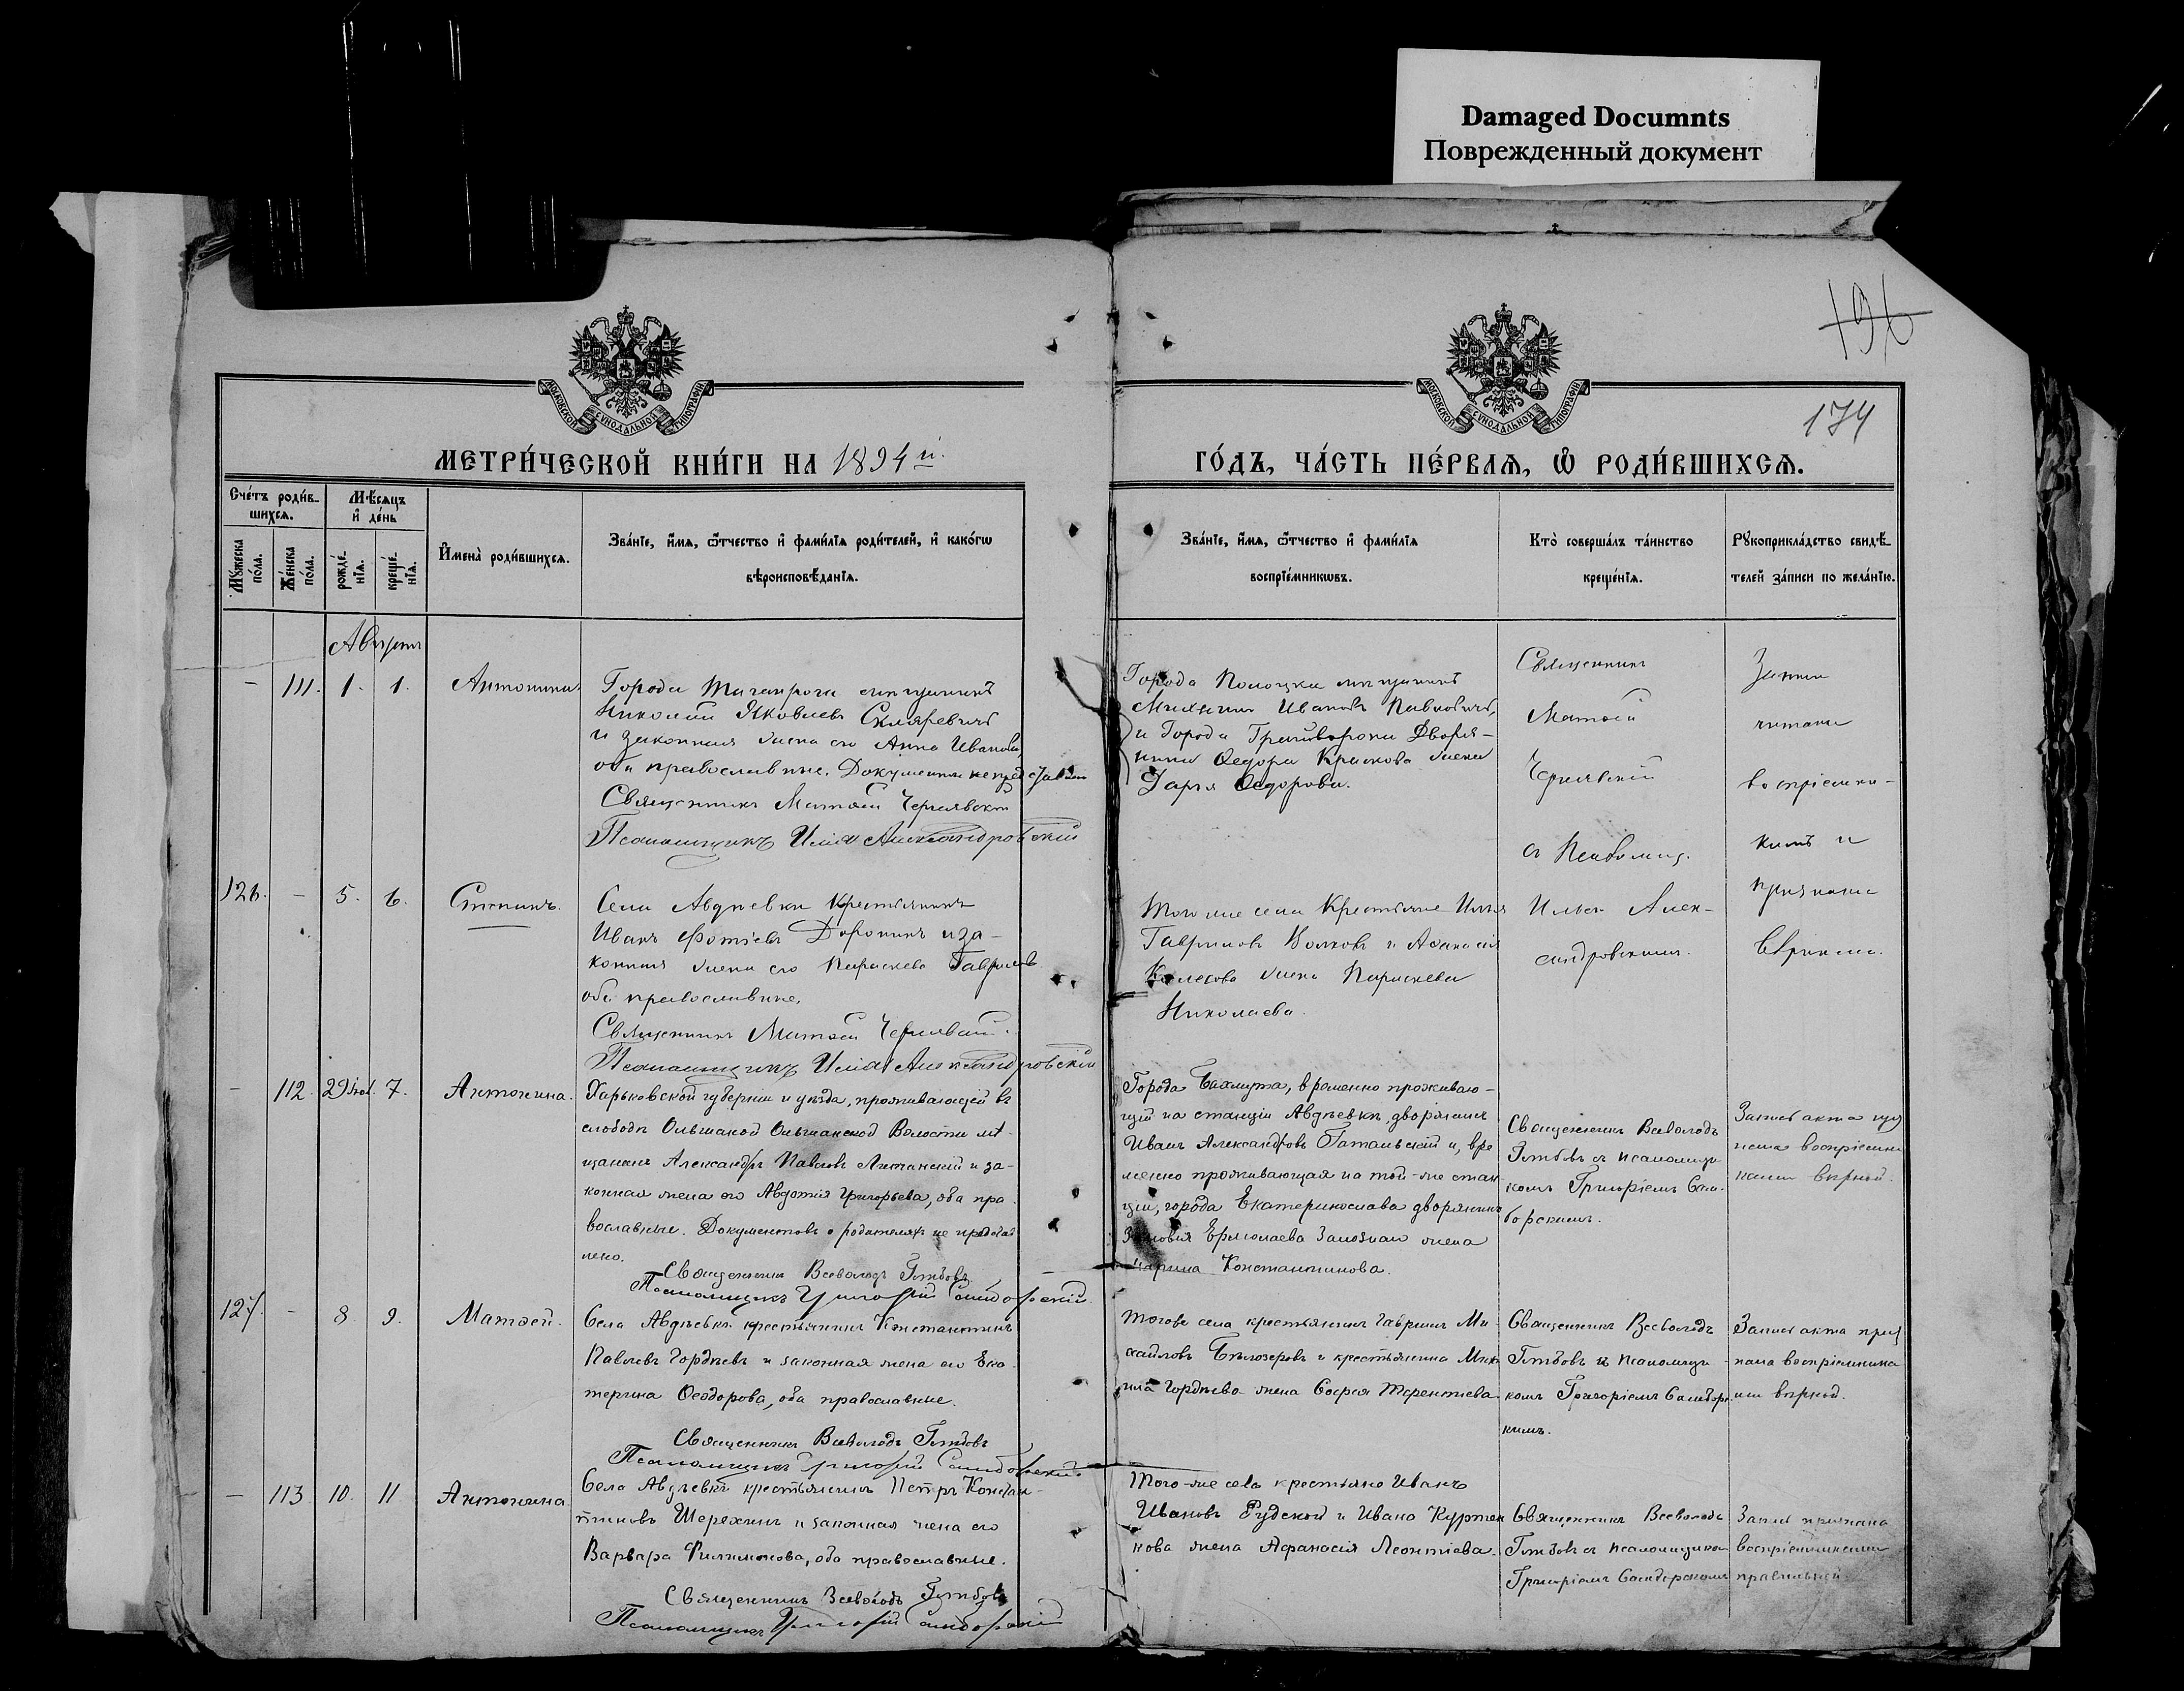 Damaged Documnts
Поврежденный документ
196
174
МОСКОВСКОЙ СѴНОДАЛЬНОЙ ТИПОГРАФІИ
МОСКОВСКОЙ СѴНОДАЛЬНОЙ ТИПОГРАФІИ
МЕТРИ́ЧЕСКОЙ КНИ́ГИ НА 1894й.
ГО́ДЪ, ЧА́СТЬ ПЕ́РВАѦ, Ѡ҆ РОДИ́ВШИХСѦ.
Сче́тъ роди́в-
шихсѧ.
Мꙋ́жеска
по́ла.
Же́нска
по́ла.
Мѣ́сѧцъ
и҆ де́нь
рожде́-
нїѧ.
креще́-
нїѧ.
И҆мена̀ роди́вшихсѧ.
Зва́нїе, и҆́мѧ, ѻ҆́тчество и҆ фами́лїѧ роди́телей, и҆ како́гѡ
вѣроисповѣ́данїѧ.
Зва́нїе, и҆́мѧ, ѻ҆́тчество и҆ фами́лїѧ
воспрїе́мникѡвъ.
Кто̀ соверша́лъ та́инство
креще́нїѧ.
Рꙋкоприкла́дство свидѣ́-
телей за́писи по жела́нїю.
Августъ
— 111. 1. 1. Антонина
Города Таганрога мѣщанинъ
Николай Яковлевъ Скляревичъ
и законная жена его Анна Иванова,
оба православные. Документы не представл
Священникъ Матѳей Чернявскій
Псаломщикъ Илія Александровскій
Города Полоцка мѣщанинъ
Михаилъ Ивановъ
и Города Грайворона Дворя-
нина Ѳедора Крискова жена
Дарья Ѳедорова.
Священникъ
Матѳей
Чернявскій
съ Псаломщ.
Ильей Алек-
сандровскимъ.
читана
воспріемни-
камъ и
признана
вѣрною.
126. — 5. 6. Стефанъ.
Села Авдѣевки Крестьянинъ
Иванъ Фотіевъ Доронинъ и за-
конная жена его Параскева Гаврилова
оба православные.
Священникъ Матѳей Чернявскій.
Псаломщикъ Илія Александровскій
Того же села Крестьяне Илья
Гавриловъ Волковъ и Аѳанасія
Колесова жена Параскева
Николаева.
— 112. 29 іюл. 7. Антонина.
Харьковской губерніи и уѣзда, проживающій въ
слободѣ Ольшаной Ольшанской Волости мѣ-
щанинъ Александръ Павловъ Литинскій и за-
конная жена его Авдотія Григорьева, оба пра-
вославные. Документовъ о родителяхъ не представ
лено.
Священникъ Всеволодъ Готбовъ
Псаломщикъ Григорій Самборскій
Города Бахмута, временно проживаю-
щій на станціи Авдѣевкѣ, дворянинъ
Иванъ Александровъ Гатальскій и, вре
менно проживающая на той-же стан-
ціи, города Екатеринослава дворянина
Зиновія Ермолаева жена
Марина Константинова.
Священникъ Всеволодъ
Готбовъ съ псаломщи-
комъ Григоріемъ Сам-
борскимъ.
Запись акта приз
нана воспріемни
ками вѣрной.
127. — 8. 9. Матѳей.
Села Авдѣевки крестьянинъ Константинъ
Павловъ Гордѣевъ и законная жена его Ека-
терина Ѳеодорова, оба православные.
Священникъ Всеволодъ Готбовъ
Псаломщикъ Григорій Самборскій
Тогоже села крестьянинъ Гавріилъ Ми-
хайловъ Бѣлозеровъ и крестьянина Миха
ила Гордѣева жена Софія Терентіева
Священникъ Всеволодъ
Готбовъ съ псаломщи-
комъ Григоріемъ Самборс
кимъ.
Запись акта приз
нана воспріемника
ми вѣрной.
— 113 10. 11 Антонина
Села Авдѣевки крестьянинъ Петръ Констан-
тиновъ Шерехинъ и законная жена его
Варвара Филимонова, оба православные.
Священникъ Всеволодъ Готбовъ
Псаломщикъ Григорій Самборскій
Того-же села крестьяне Иванъ
Ивановъ Рудской и Ивана Куртен
кова жена Афанасія Леонтіева.
Священникъ Всеволодъ
Готбовъ съ псаломщикомъ
Григоріемъ Самборскимъ
Запись признана
воспріемниками
правильной